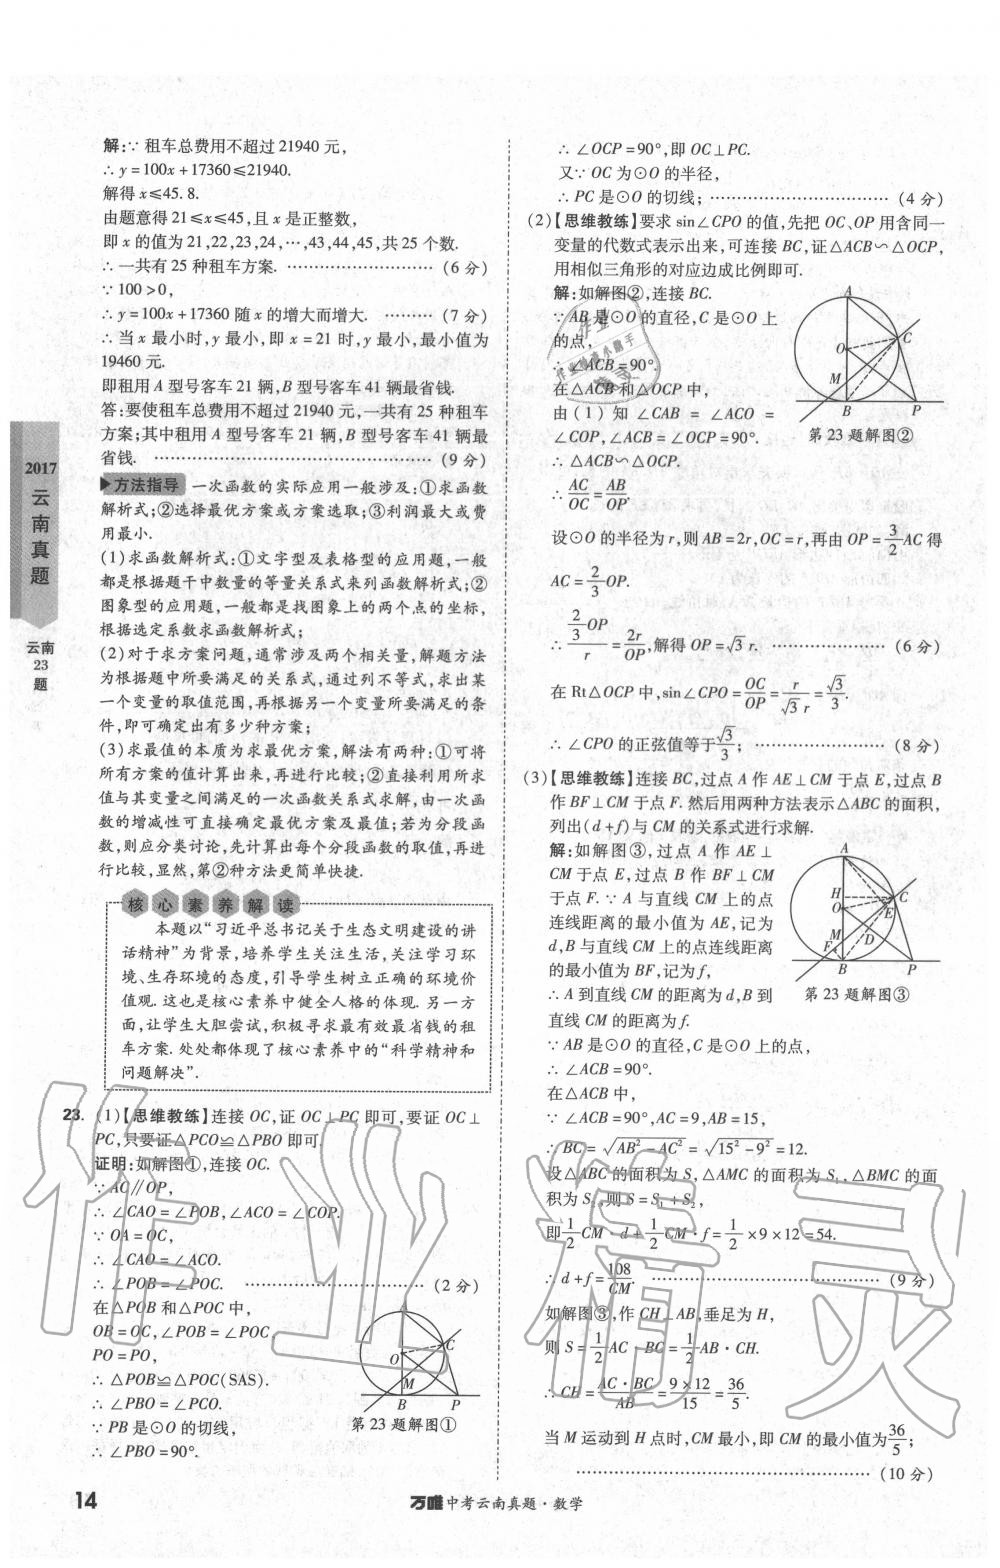 解:∵ 租车总费用不超过 21940 元,
∴ y = 100x + 17360 ≤ 21940.
解得 x ≤ 45. 8.
由题意得 21 ≤ x ≤ 45,且 x 是正整数,
即 x 的值为 21,22,23,24,…,43,44,45,共 25 个数.
∴ 一共有 25 种租车方案. ……………………… (6 分)
∵ 100 > 0,
∴ y = 100x + 17360 随 x 的增大而增大. ……… (7 分)
∴ 当 x 最小时,y 最小,即 x = 21 时,y 最小,最小值为
19460 元.
即租用 A 型号客车 21 辆,B 型号客车 41 辆最省钱.
答:要使租车总费用不超过 21940 元,一共有 25 种租车
方案;其中租用 A 型号客车 21 辆,B 型号客车 41 辆最
省钱. ……………………………………………… (9 分)
方法指导 一次函数的实际应用一般涉及:①求函数
解析式;②选择最优方案或方案选取;③利润最大或费
用最小.
(1)求函数解析式:①文字型及表格型的应用题,一般
都是根据题干中数量的等量关系式来列函数解析式;②
图象型的应用题,一般都是找图象上的两个点的坐标,
根据选定系数求函数解析式;
(2)对于求方案问题,通常涉及两个相关量,解题方法
为根据题中所要满足的关系式,通过列不等式,求出某
一个变量的取值范围,再根据另一个变量所要满足的条
件,即可确定出有多少种方案;
(3)求最值的本质为求最优方案,解法有两种:①可将
所有方案的值计算出来,再进行比较;②直接利用所求
值与其变量之间满足的一次函数关系式求解,由一次函
数的增减性可直接确定最优方案及最值;若为分段函
数,则应分类讨论,先计算出每个分段函数的取值,再进
行比较,显然,第②种方法更简单快捷.
核心素养解读
本题以“习近平总书记关于生态文明建设的讲
话精神”为背景,培养学生关注生活,关注学习环
境、生存环境的态度,引导学生树立正确的环境价
值观. 这也是核心素养中健全人格的体现. 另一方
面,让学生大胆尝试,积极寻求最有效最省钱的租
车方案. 处处都体现了核心素养中的“科学精神和
问题解决”.
23. (1)【思维教练】连接 OC,证 OC⊥PC 即可,要证 OC⊥
PC,只要证△PCO≌△PBO 即可.
证明:如解图①,连接 OC.
∵ AC∥OP,
∴ ∠CAO = ∠POB,∠ACO = ∠COP.
∵ OA = OC,
∴ ∠CAO = ∠ACO.
∴ ∠POB = ∠POC. ……………………………… (2 分)
在△POB 和△POC 中,
OB = OC,∠POB = ∠POC,
PO = PO,
∴ △POB≌△POC(SAS).
∴ ∠PBO = ∠PCO.
∵ PB 是⊙O 的切线,
∴ ∠PBO = 90°.
A
O
C
M
B
P
第 23 题解图①
∴ ∠OCP = 90°,即 OC⊥PC.
又∵ OC 为⊙O 的半径,
∴ PC 是⊙O 的切线; …………………………… (4 分)
(2)【思维教练】要求 sin∠CPO 的值,先把 OC、OP 用含同一
变量的代数式表示出来,可连接 BC,证△ACB∽△OCP,
用相似三角形的对应边成比例即可.
解:如解图②,连接 BC.
∵ AB 是⊙O 的直径,C 是⊙O 上
的点,
∴ ∠ACB = 90°.
在△ACB 和△OCP 中,
由 (1) 知 ∠CAB = ∠ACO =
∠COP,∠ACB = ∠OCP = 90°.
∴ △ACB∽△OCP.
A
O
C
M
B
P
第 23 题解图②
∴ AC/OC = AB/OP.
设⊙O 的半径为 r,则 AB = 2r,OC = r,再由 OP = 3/2 AC 得
AC = 2/3 OP.
∴ (2/3 OP)/r = 2r/OP,解得 OP = √3 r. ………………… (6 分)
在 Rt△OCP 中,sin∠CPO = OC/OP = r/(√3 r) = √3/3.
∴ ∠CPO 的正弦值等于 √3/3; …………………… (8 分)
(3)【思维教练】连接 BC,过点 A 作 AE⊥CM 于点 E,过点 B
作 BF⊥CM 于点 F. 然后用两种方法表示△ABC 的面积,
列出(d + f)与 CM 的关系式进行求解.
解:如解图③,过点 A 作 AE⊥
CM 于点 E,过点 B 作 BF⊥CM
于点 F. ∵ A 与直线 CM 上的点
连线距离的最小值为 AE,记为
d,B 与直线 CM 上的点连线距离
的最小值为 BF,记为 f,
∴ A 到直线 CM 的距离为 d,B 到
直线 CM 的距离为 f.
A
H
C
O
E
M
D
F
B
P
第 23 题解图③
∵ AB 是⊙O 的直径,C 是⊙O 上的点,
∴ ∠ACB = 90°.
在△ACB 中,
∵ ∠ACB = 90°,AC = 9,AB = 15,
∴ BC = √(AB² - AC²) = √(15² - 9²) = 12.
设△ABC 的面积为 S,△AMC 的面积为 S₁,△BMC 的面
积为 S₂,则 S = S₁ + S₂,
即 1/2 CM · d + 1/2 CM · f = 1/2 × 9 × 12 = 54.
∴ d + f = 108/CM. …………………………………… (9 分)
如解图③,作 CH⊥AB,垂足为 H,
则 S = 1/2 AC · BC = 1/2 AB · CH.
∴ CH = AC · BC/AB = 9 × 12/15 = 36/5.
当 M 运动到 H 点时,CM 最小,即 CM 的最小值为 36/5;
…………………………………………………… (10 分)
2017
云南真题
云南
23
题
14
万唯中考云南真题·数学
作业精灵